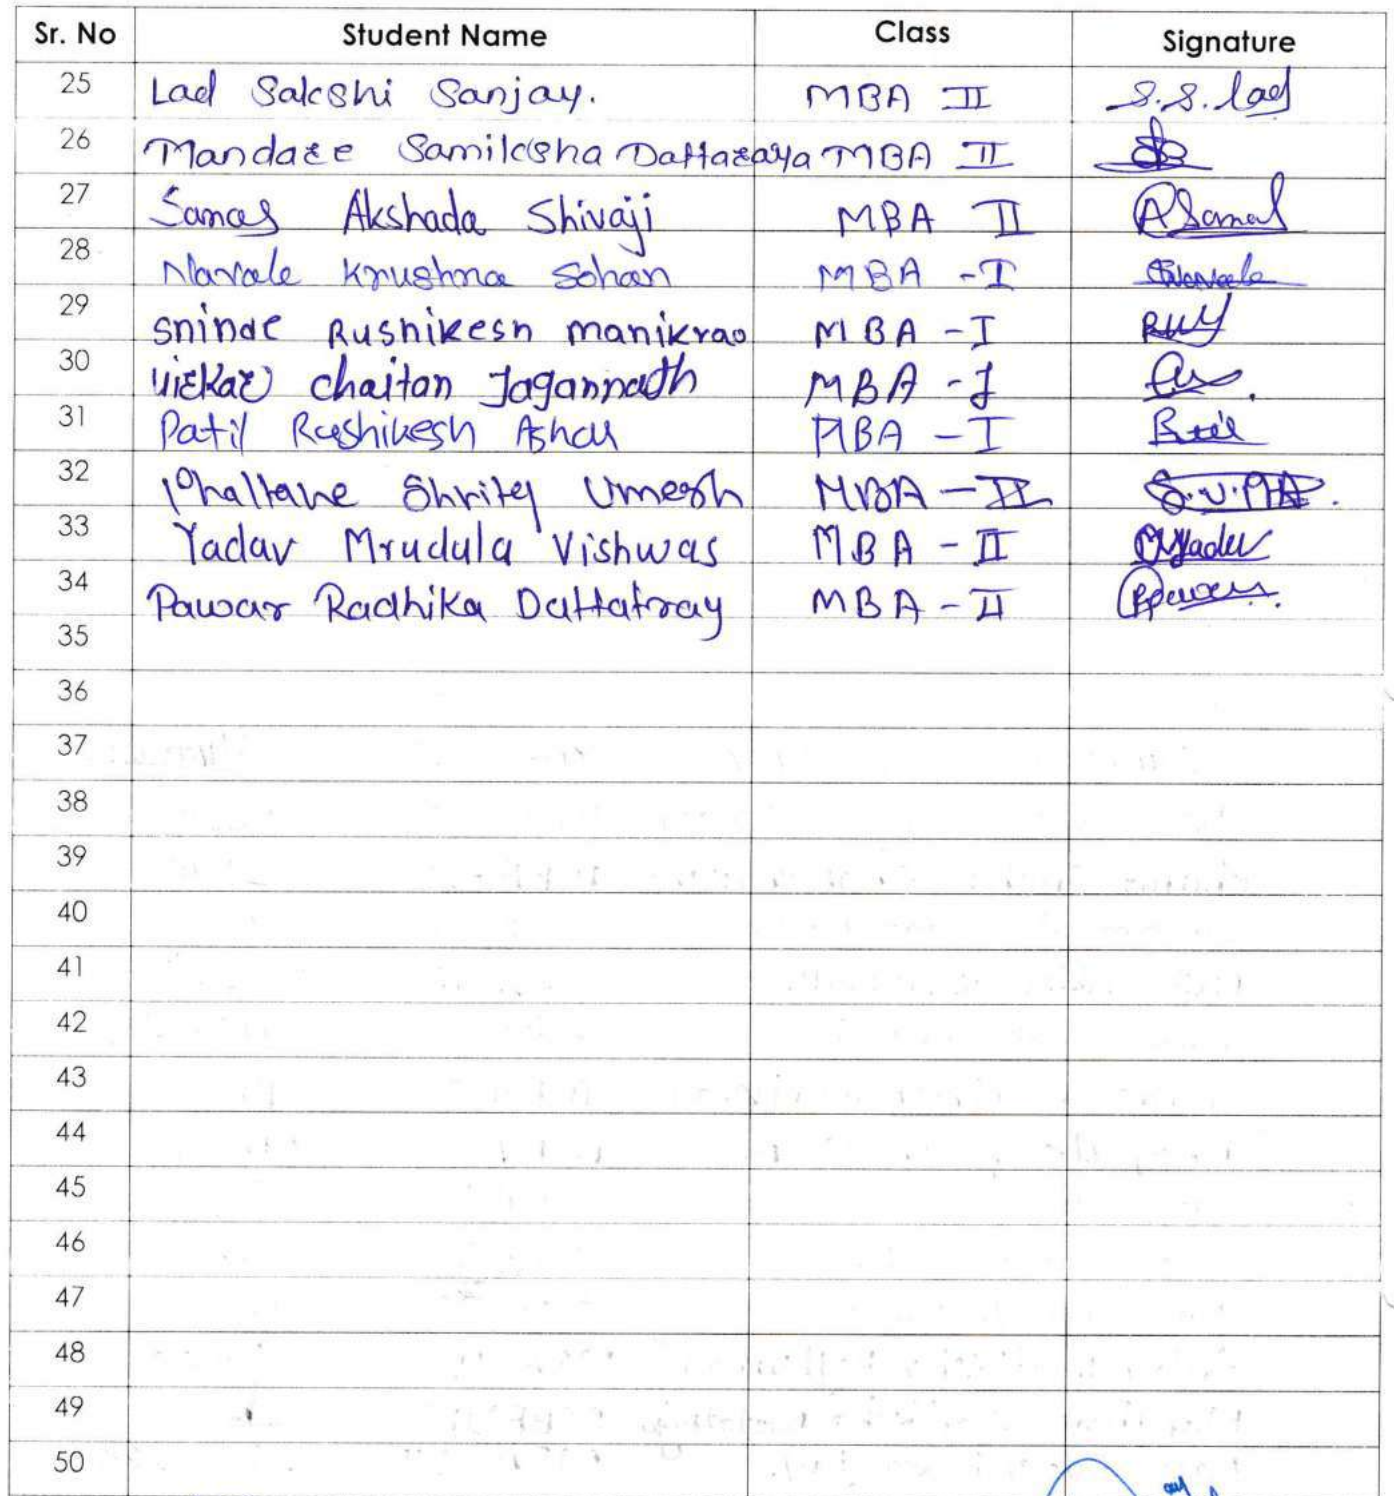 Sr. No Student Name Class Signature
25 Lad Sakshi Sanjay. MBA II S.S. Lad
26 Mandare Samiksha Dattaraya MBA II
27 Sanas Akshada Shivaji MBA II
28 Navale Krushna Sohan MBA -I
29 Shinde Rushikesh manikrao MBA -I
30 chaitan Jagannath MBA -I
31 Patil Rushikesh MBA -I
32 Phaltane Umesh MBA -II
33 Yadav Mrudula Vishwas MBA -II
34 Pawar Radhika Dattatray MBA -II
35
36
37
38
39
40
41
42
43
44
45
46
47
48
49
50